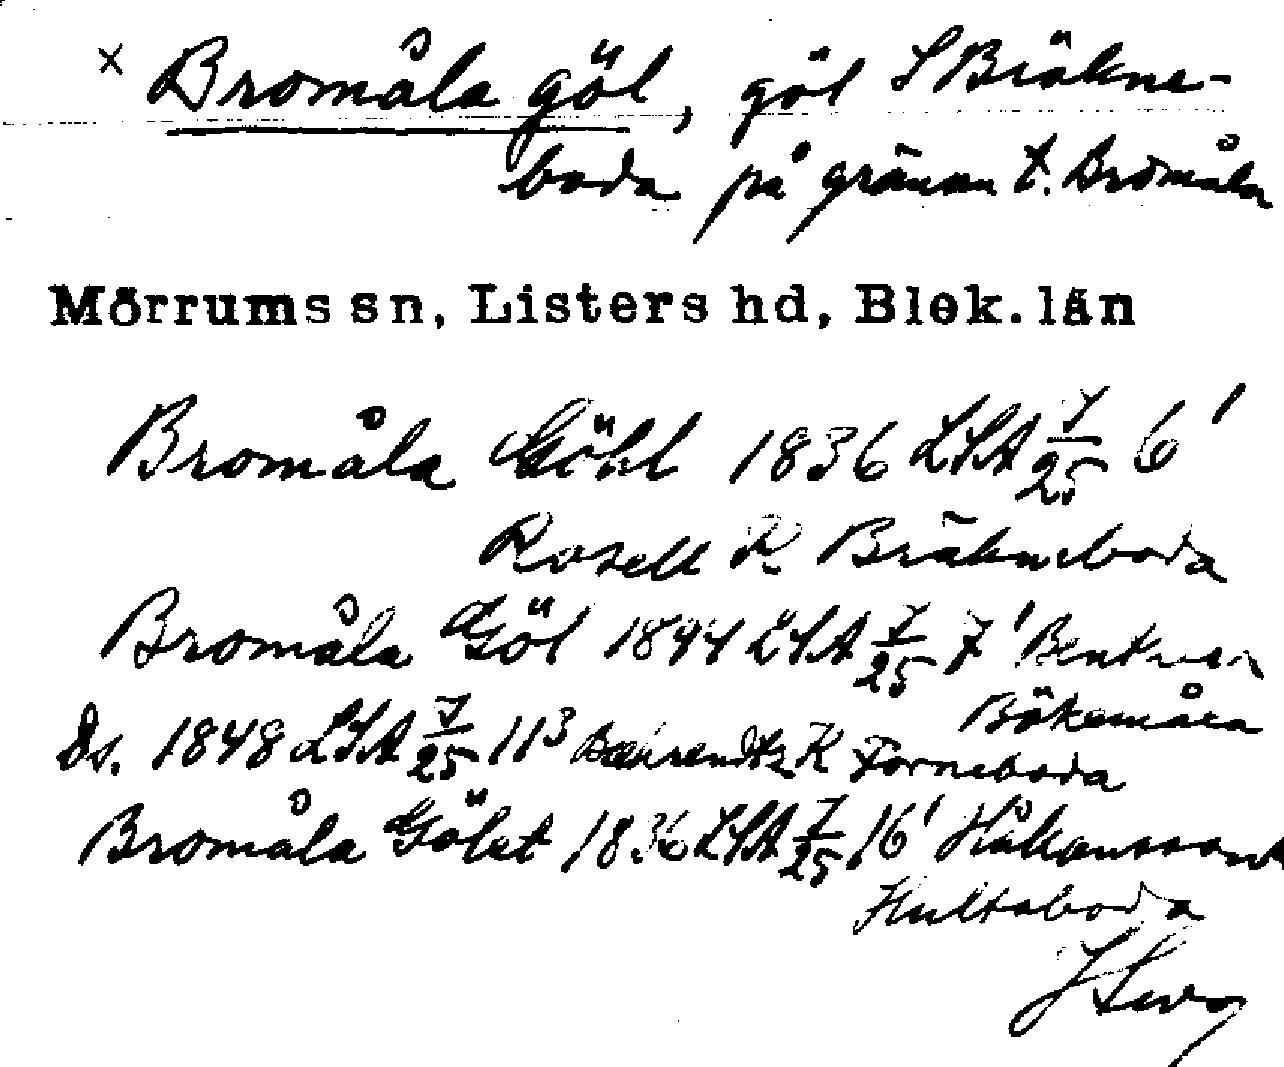 × Bromåla göl, göl S Bräkne-
boda på gränsen t. Bromåla
Mörrums sn, Listers hd, Blek. län
Bromåla Göhl 1836 LSA 7/25 6¹
Rosell K Bräkneboda
Bromåla Göl 1894 LSA 7/25 7¹
Bökemåla
Ds. 1848 LSA 7/25 11³ Baehrendtz K Torneboda
Bromåla Gölet 1836 LSA 7/25 16¹ Håkansson K
Hultaboda